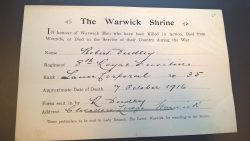 The Warwick Shrine
In honour of Warwick Men who have been Killed in Action, Died from
Wounds, or Died in the Service of their Country during the War.
Name Robert Dudley
Regiment 8th Royal Fusiliers
Rank Lance Corporal no. 35
Approximate Date of Death, 7 October 1916
Form sent in by R Dudley
Address, Warwick
These particulars to be sent to Lady Bernard, The Leaves, Warwick, for recording in the Shrine.